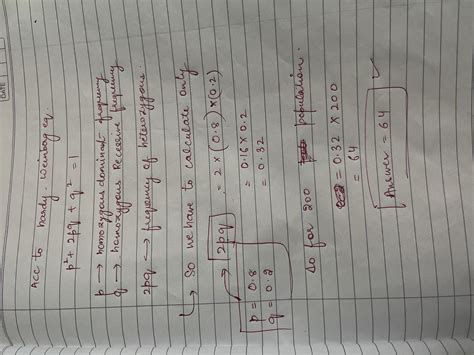 DATE
Acc to hardy-weinbag eq.
p² + 2pq + q² = 1
p → homozygous dominant frequency
q → homozygous Recessive frequency
2pq → frequency of heterozygous.
↳ So we have to calculate only
2pq = 2 × (0.8) × (0.2)
p = 0.8
q = 0.2
= 0.16 × 0.2
= 0.32
So for 200 population.
= 0.32 × 200
= 64
Answer = 64